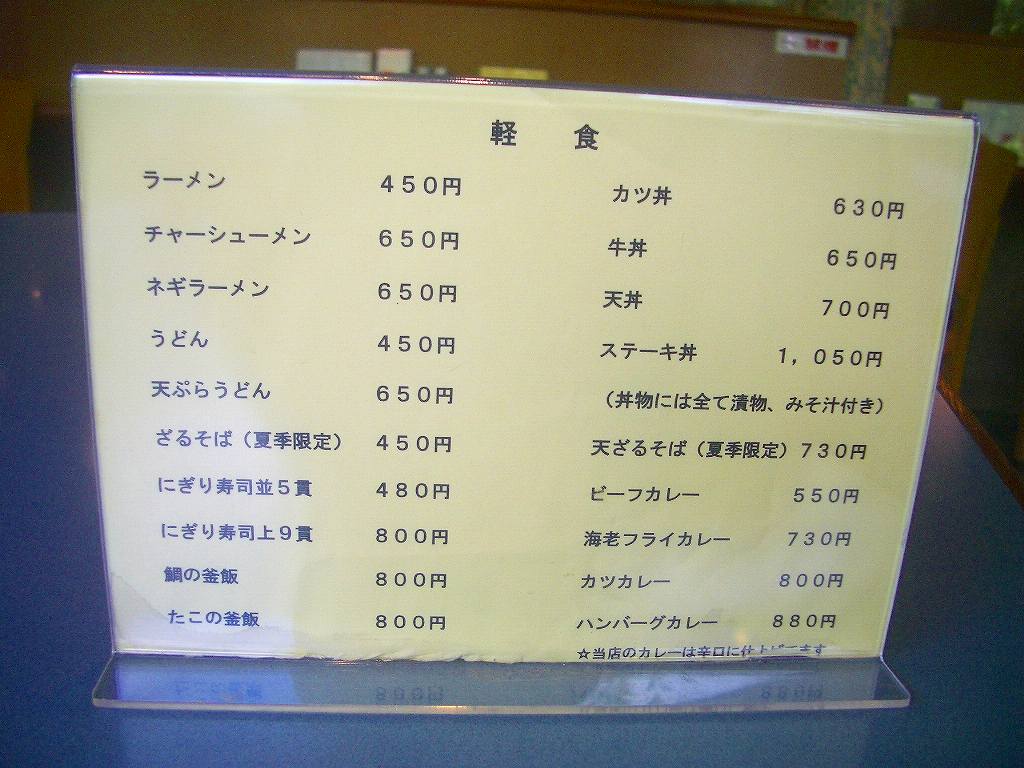 軽 食
ラーメン 450円
チャーシューメン 650円
ネギラーメン 650円
うどん 450円
天ぷらうどん 650円
ざるそば(夏季限定) 450円
にぎり寿司並5貫 480円
にぎり寿司上9貫 800円
鯛の釜飯 800円
たこの釜飯 800円
カツ丼 630円
牛丼 650円
天丼 700円
ステーキ丼 1,050円
(丼物には全て漬物、みそ汁付き)
天ざるそば(夏季限定) 730円
ビーフカレー 550円
海老フライカレー 730円
カツカレー 800円
ハンバーグカレー 880円
☆当店のカレーは辛口に仕上げてます